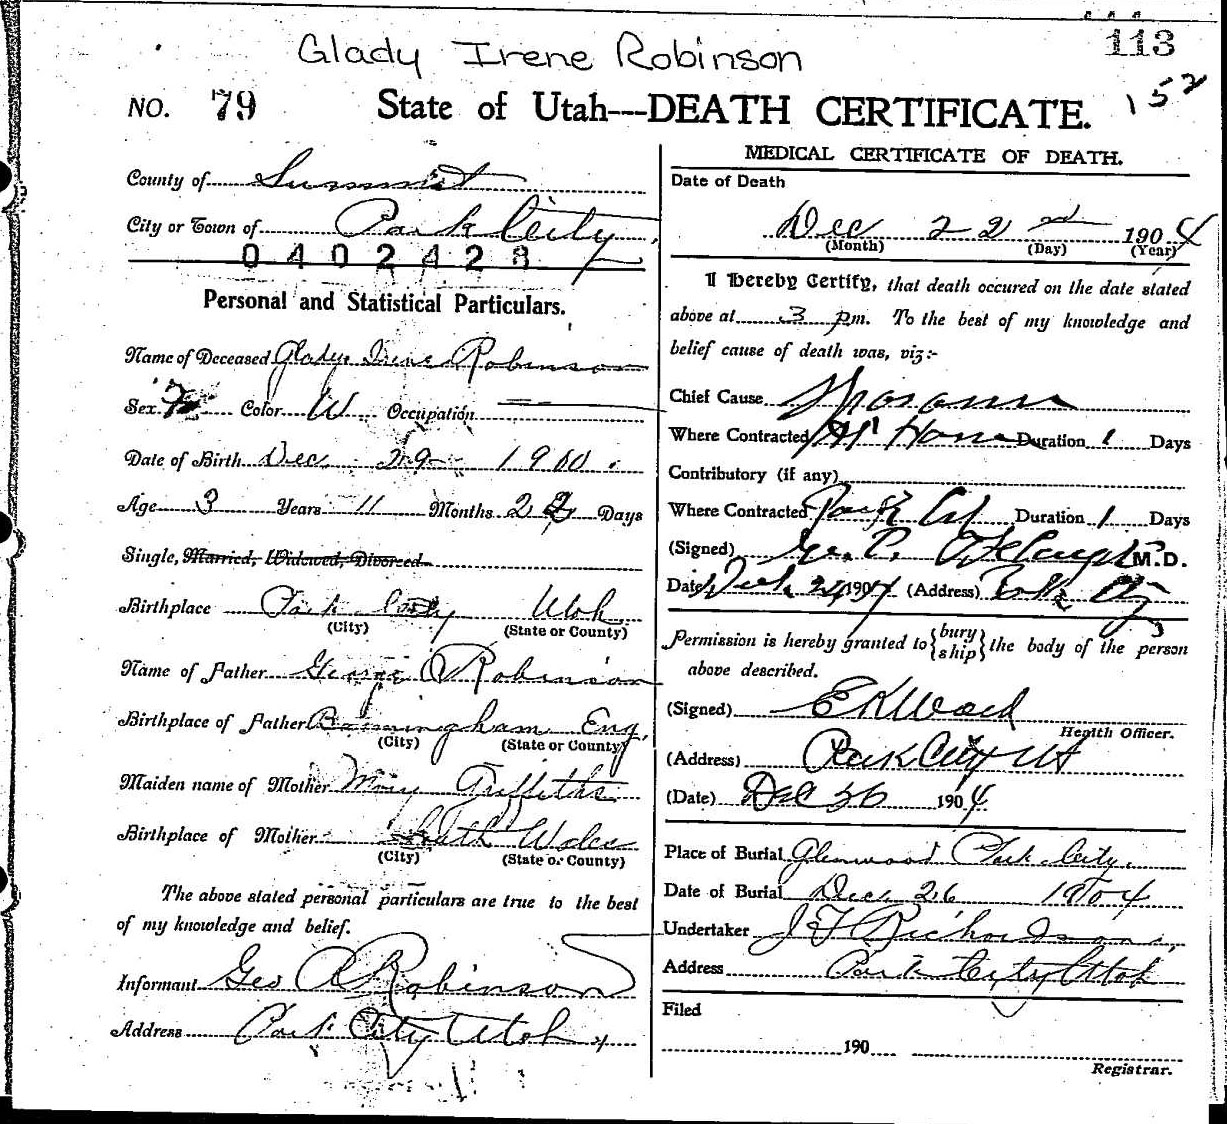 Glady Irene Robinson
113
152
NO. 79 State of Utah---DEATH CERTIFICATE.
County of Summit
City or Town of Park City
0402428
Personal and Statistical Particulars.
Name of Deceased Glady Irene Robinson
Sex F Color W Occupation
Date of Birth Dec 29 1900
Age 3 Years 11 Months 23 Days
Single, Married, Widowed, Divorced
Birthplace Park City Utah
(City) (State or County)
Name of Father George R Robinson
Birthplace of Father Birmingham Eng.
(City) (State or County)
Maiden name of Mother Mary Griffiths
Birthplace of Mother South Wales
(City) (State or County)
The above stated personal particulars are true to the best
of my knowledge and belief.
Informant Geo R Robinson
Address Park City Utah
MEDICAL CERTIFICATE OF DEATH.
Date of Death
Dec 22nd 1904
(Month) (Day) (Year)
I Hereby Certify, that death occured on the date stated
above at 3 pm. To the best of my knowledge and
belief cause of death was, viz:-
Chief Cause
Where Contracted At Home Duration 1 Days
Contributory (if any)
Where Contracted Park City Duration 1 Days
(Signed) M.D.
Date 24 1904 (Address) Park City
Permission is hereby granted to {bury ship} the body of the person
above described.
(Signed) E K Ward
Health Officer.
(Address) Park City Ut
(Date) Dec 26 1904
Place of Burial Glenwood Park City.
Date of Burial Dec. 26 1904
Undertaker J F Richardson
Address Park City Utah
Filed
190
Registrar.